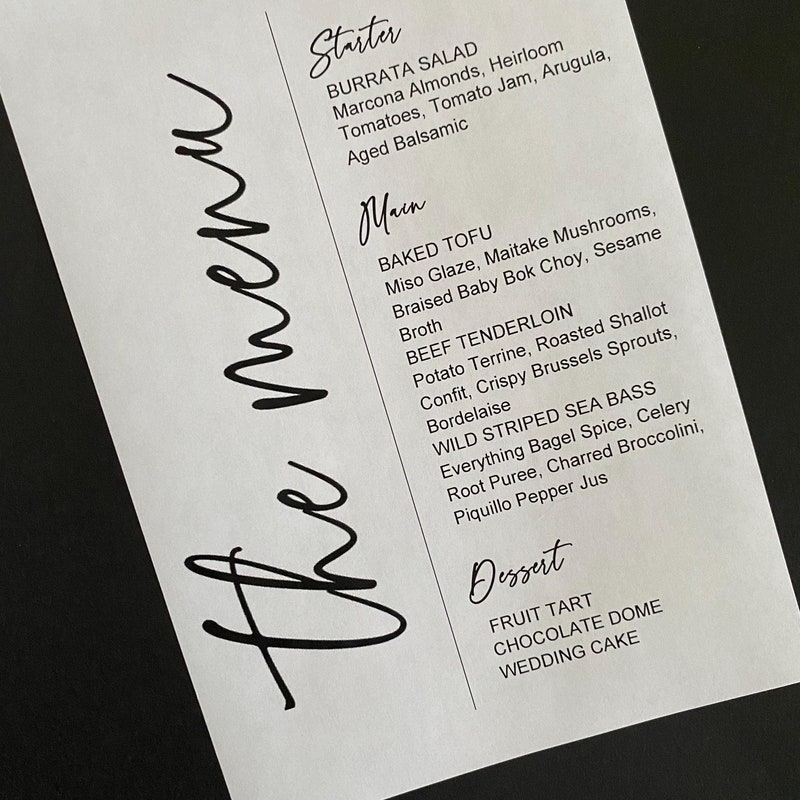 the menu
Starter
BURRATA SALAD
Marcona Almonds, Heirloom
Tomatoes, Tomato Jam, Arugula,
Aged Balsamic
Main
BAKED TOFU
Miso Glaze, Maitake Mushrooms,
Braised Baby Bok Choy, Sesame
Broth
BEEF TENDERLOIN
Potato Terrine, Roasted Shallot
Confit, Crispy Brussels Sprouts,
Bordelaise
WILD STRIPED SEA BASS
Everything Bagel Spice, Celery
Root Puree, Charred Broccolini,
Piquillo Pepper Jus
Dessert
FRUIT TART
CHOCOLATE DOME
WEDDING CAKE